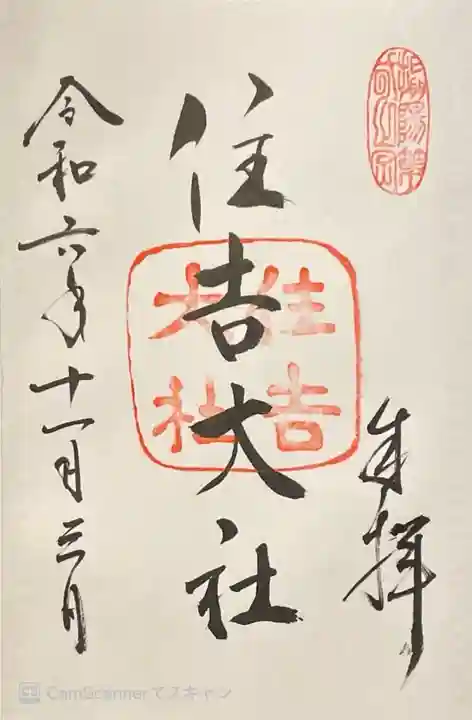 奉拝
住吉大社
住吉
大社
令和六年十一月三日
CamScannerでスキャン